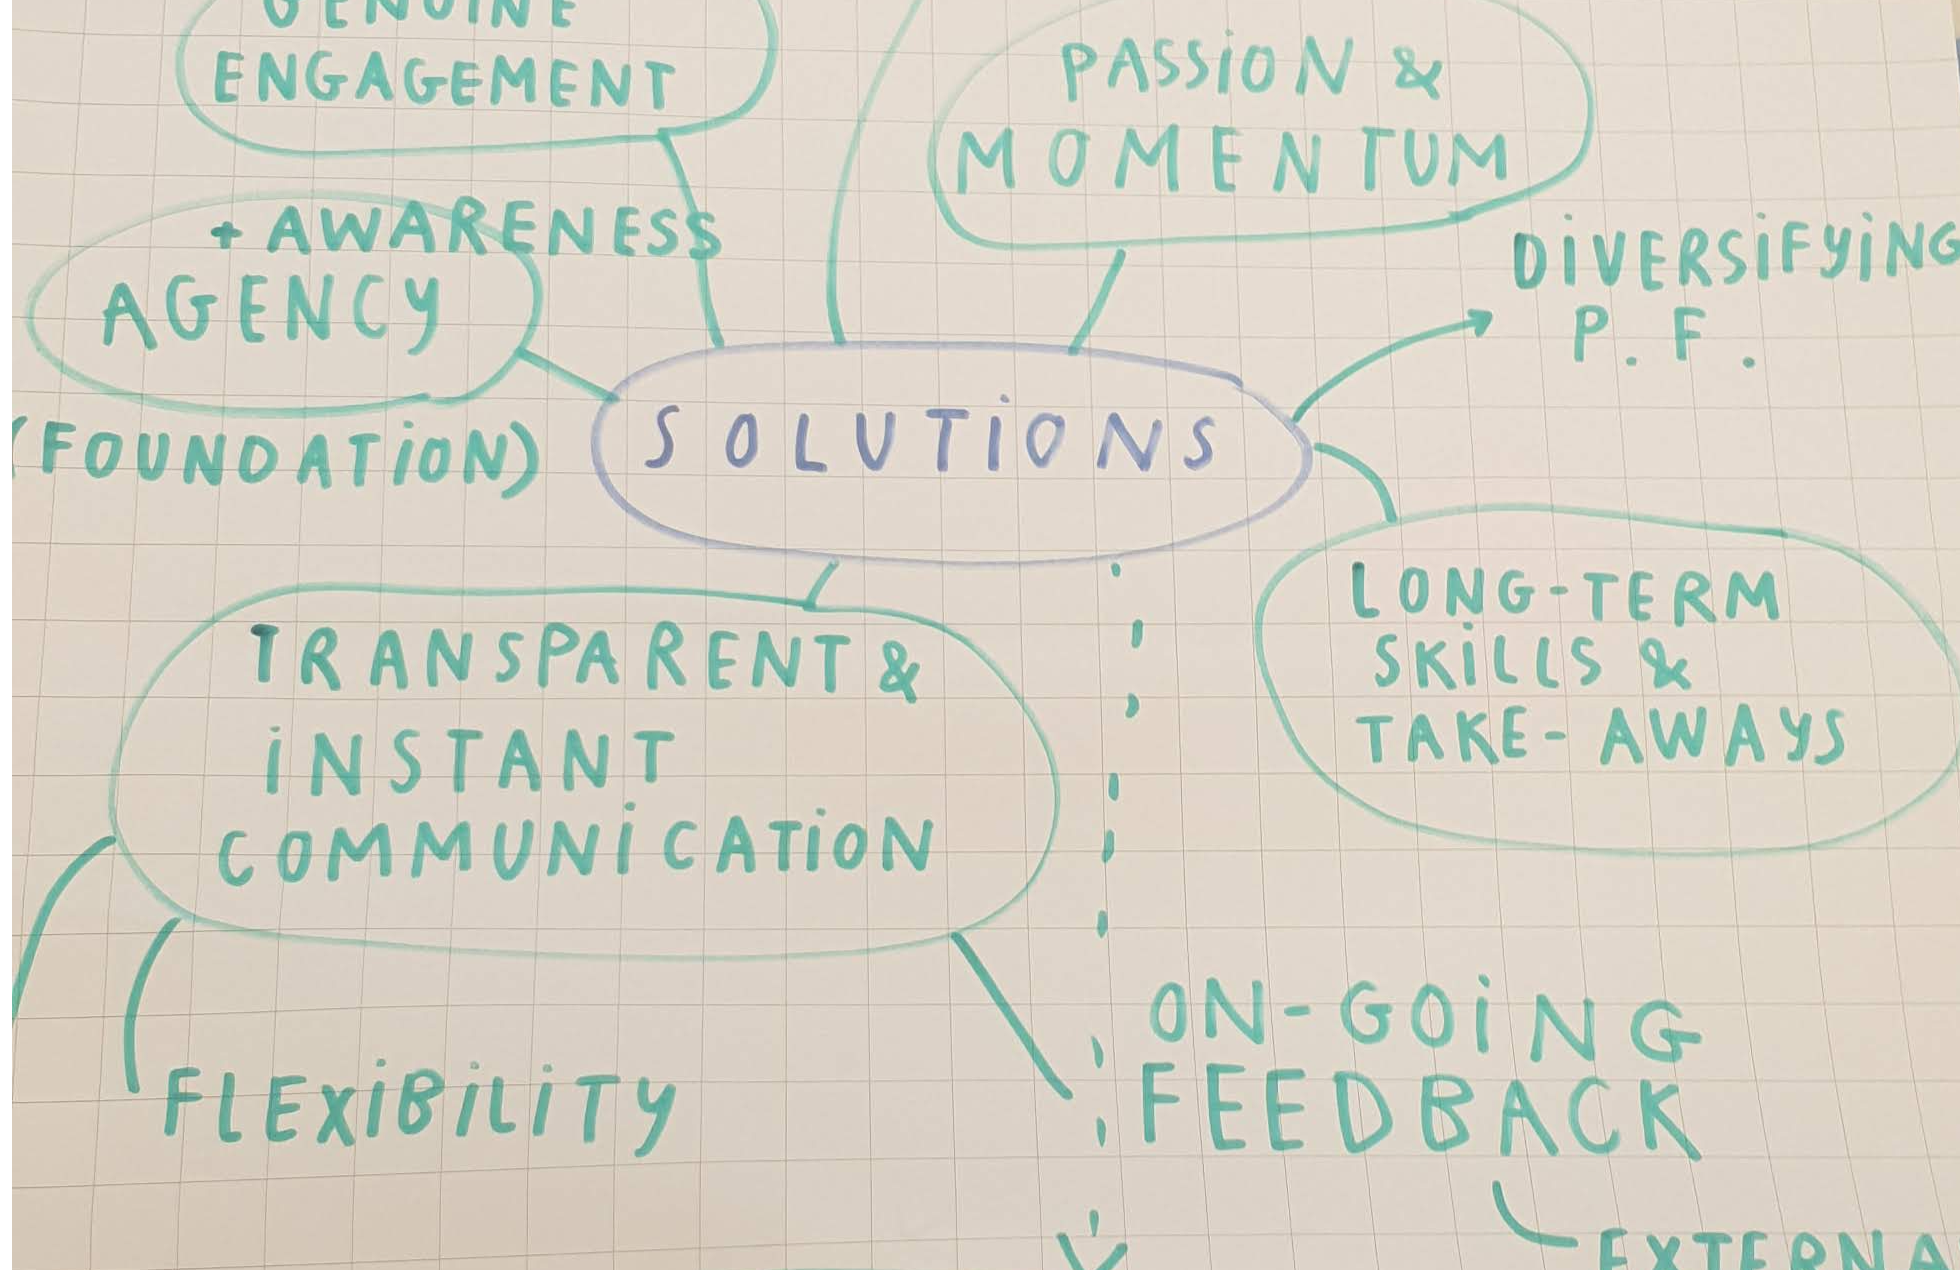 GENUINE
ENGAGEMENT
PASSION &
MOMENTUM
+ AWARENESS
AGENCY
(FOUNDATION)
DIVERSIFYING
P. F.
SOLUTIONS
LONG-TERM
SKILLS &
TAKE-AWAYS
TRANSPARENT &
INSTANT
COMMUNICATION
FLEXIBILITY
ON-GOING
FEEDBACK